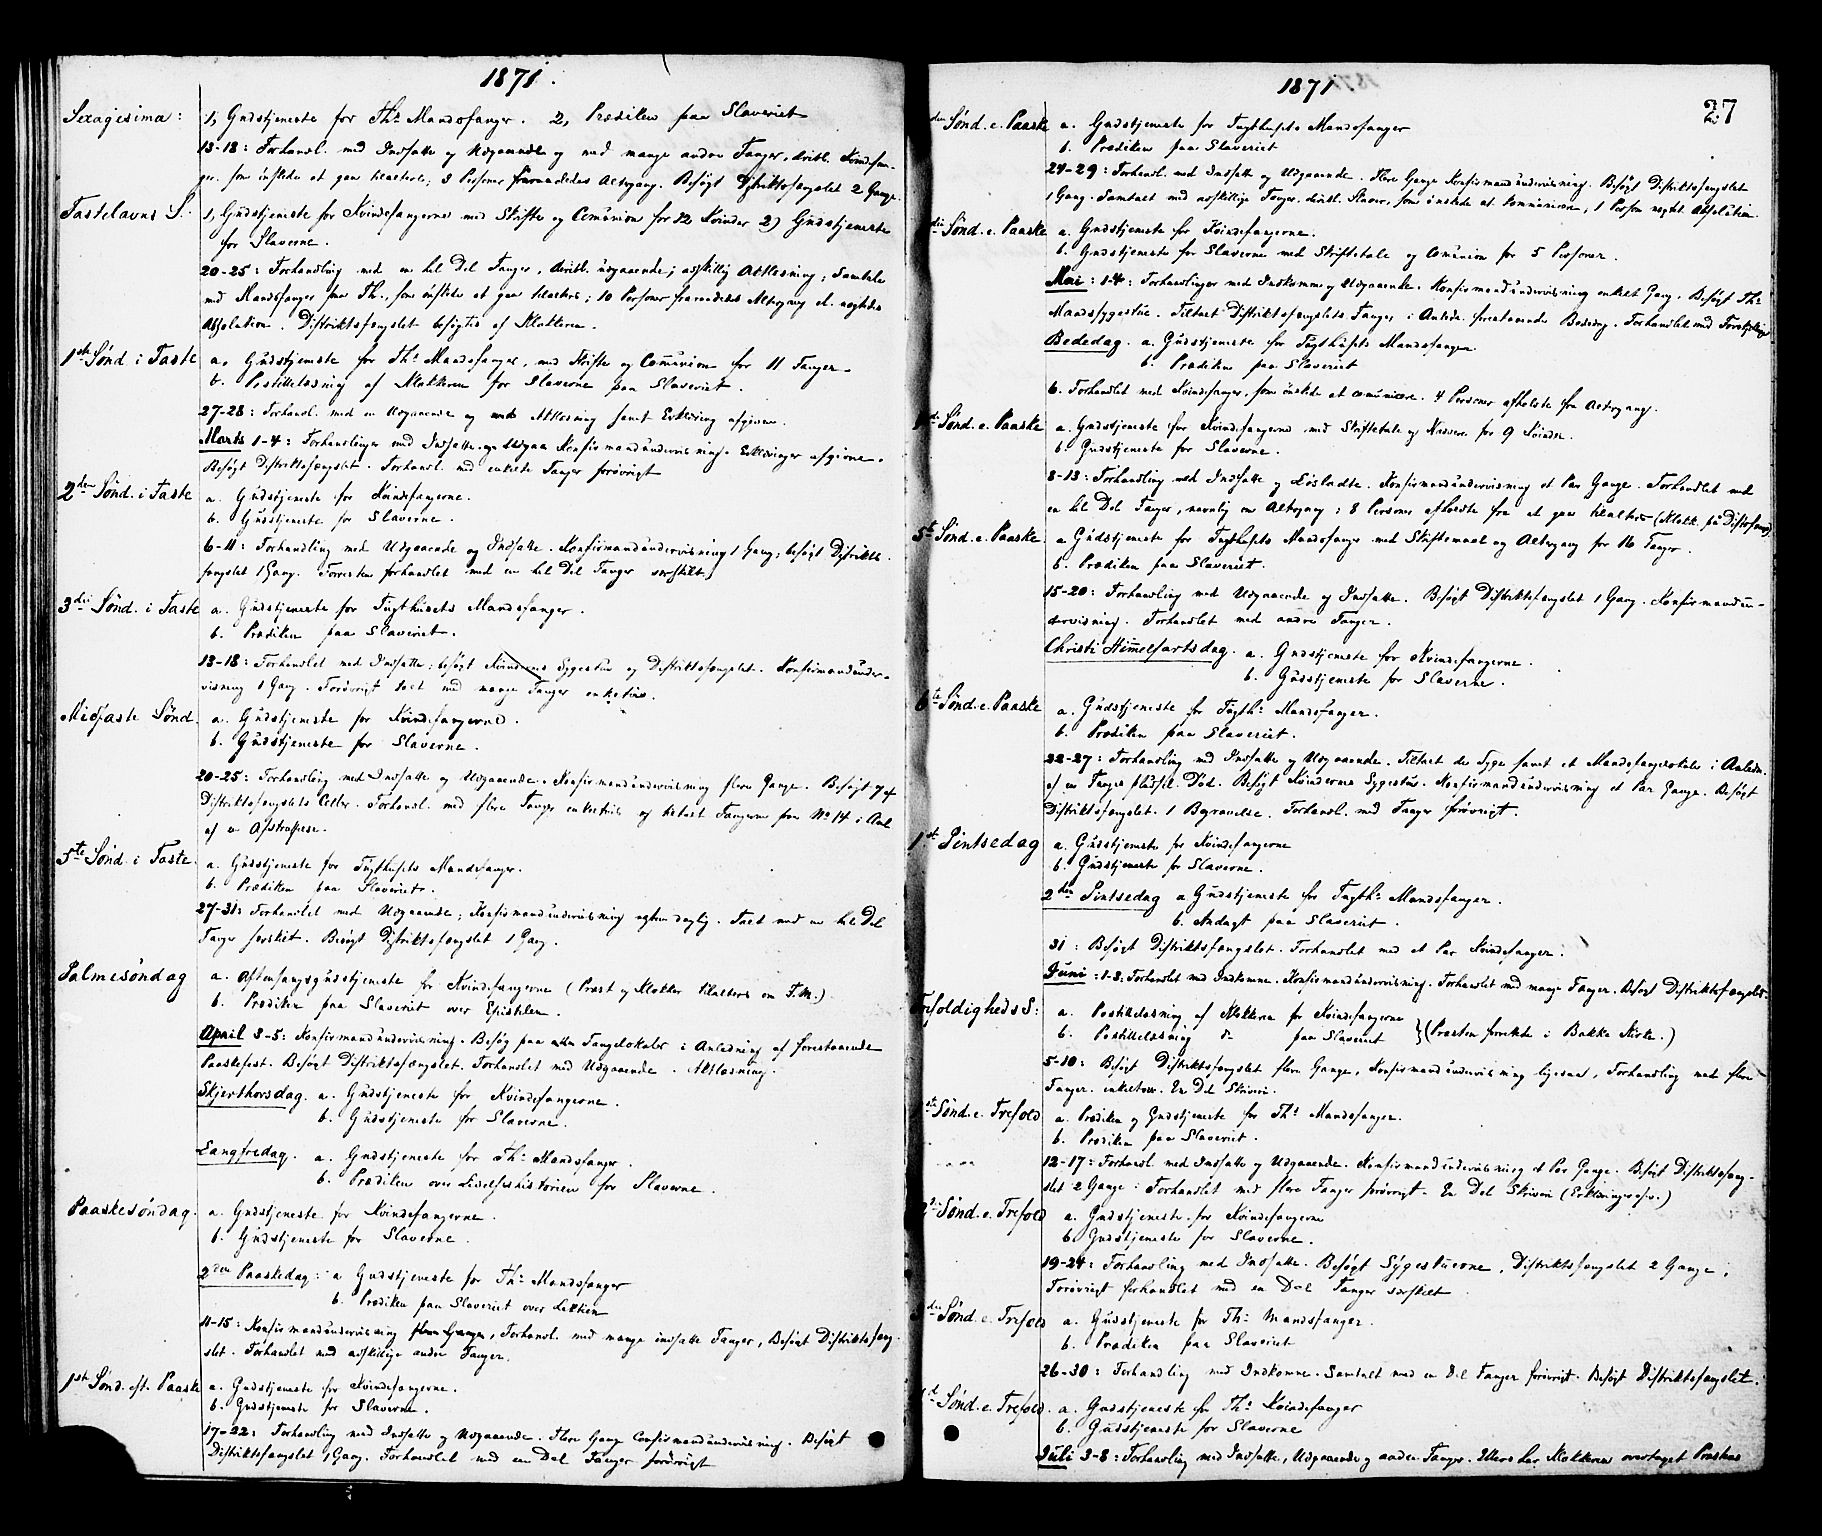 1871.
Sexagesima: 1, Gudstjeneste for Ths Mandsfanger. 2, Prædiken paa Slaveriet
13-18: Forhandl. med Indsatte og Udgaaende og med mange andre Fanger, deribl. Kvindefan-
ger, som ønskede at gaa til Alters; 8 Personer Altergang. Besøgt Distriktsfængslet 2 Gange.
Fastelavns S. 1, Gudstjeneste for Kvindefangerne med Skrifte og Comunion for 12 Kvinder 2) Gudstjeneste
for Slaverne.
20-25: Forhandling med en hel Del Fanger, deribl. udgaaende; adskillig Attlesning; Samtale
med Mandsfanger paa Th., som ønskede at gaa til Alters; 10 Personer Altergang el. nægtedes
Absolution. Distriktsfængslet besøgtes af Klokkeren.
1ste Sønd. i Faste a. Gudstjeneste for Ths Mandsfanger, med Skrifte og Comunion for 11 Fanger.
b. Postillelæsning af Klokkeren for Slaverne paa Slaveriet.
27-28: Forhandl. med en Udgaaende og Attlesning samt Erklæring afgiven.
Marts 1-4: Forhandlinger med Indsatte og Udgaa Konfirmandundervisning. Erklæringer afgivne.
Besøgt Distriktsfængslet. Forhandl. med enkelte Fanger forøvrigt
2den Sønd. i Faste a. Gudstjeneste for Kvindefangerne.
b. Gudstjeneste for Slaverne.
6-11: Forhandling med Udgaaende og Indsatte. Konfirmandundervisning 1 Gang; besøgt Distrikts-
fængslet 1 Gang. Forresten forhandlet med en hel Del Fanger særskilt.
3die Sønd. i Faste a. Gudstjeneste for Tugthusets Mandsfanger.
b. Prædiken paa Slaveriet.
13-18: Forhandlet med Indsatte; besøgt Kvindernes Sygestue og Distriktsfængslet. Konfirmandunder-
visning 1 Gang. Forøvrigt talt med mange Fanger enkeltvis.
Midfaste Sønd. a. Gudstjeneste for Kvindefangerne.
b. Gudstjeneste for Slaverne.
20-25: Forhandling med Indsatte og Udgaaende. Konfirmandundervisning flere Gange. Besøgt 7 af
Distriktsfængslets Celler. Forhandl. med flere Fanger enkeltvis og tiltalt Fangerne paa No 14 i Anl
af en Afstraffelse.
5te Sønd. i Faste. a. Gudstjeneste for Tugthusets Mandsfanger.
b. Prædiken paa Slaveriet.
27-31: Forhandlet med Udgaaende; Konfirmandundervisning daglig. Talt med en hel Del
Fanger særskilt. Besøgt Distriktsfængslet 1 Gang.
Palmesøndag a. Aftensangsgudstjeneste for Kvindefangerne (Præst og Klokker til Alters om F.M.)
b. Prædiken paa Slaveriet over Epistelen.
April 3-5: Konfirmandundervisning. Besøg paa Fangelokaler i Anledning af forestaaende
Paaskefest. Besøgt Distriktsfængslet. Forhandlet med Udgaaende. Attlesning.
Skjærthorsdag. a. Gudstjeneste for Kvindefangerne.
b. Gudstjeneste for Slaverne.
Langfredag. a. Gudstjeneste for Ths Mandsfanger.
b. Prædiken over Lidelseshistorien for Slaverne.
Paaskesøndag. a. Gudstjeneste for Kvindefangerne.
b. Gudstjeneste for Slaverne.
2den Paaskedag: a Gudstjeneste for Ths Mandsfanger
b. Prædiken paa Slaveriet over Lektien
11-15: Konfirmandundervisning flere Gange, Forhandl. med mange indsatte Fanger, Besøgt Distriktsfæng-
slet. Forhandlet med adskillige andre Fanger.
1ste Sønd. eft. Paaske a. Gudstjeneste for Kvindefangerne.
b. Gudstjeneste for Slaverne.
17-22: Forhandling med Indsatte og Udgaaende. Flere Gange Confirmandundervisning. Besøgt
Distriktsfængslet 1 Gang. Forhandlet med en Del Fanger forøvrigt
1871
27
den Sønd. e. Paaske a. Gudstjeneste for Tugthusets Mandsfanger
b. Prædiken paa Slaveriet
24-29: Forhandl. med Indsatte og Udgaaende. Flere Gange Konfirmandundervisning. Besøgt Distriktsfængslet
1 Gang. Samtalt med adskillige Fanger, deribl. Slaver, som ønskede at Communicere, 1 Person nægtet Absolution.
die Sønd. e. Paaske a. Gudstjeneste for Kvindefangerne.
b. Gudstjeneste for Slaverne med Skriftetale og Comunion for 5 Personer.
Mai: 1-4: Forhandlinger med Indkomne og Udgaaende. Konfirmandundervisning enkelt Gang. Besøgt Ths
Mandssygestue. Tiltalt Distriktsfængslets Fanger i Anledn. forestaaende Bededag.
Bededag. a. Gudstjeneste for Tugthusets Mandsfanger
b. Prædiken paa Slaveriet
6. Forhandlet med Kvindefanger, som ønskede at comunicere. 4 Personer afholdte fra Altergang.
de Sønd. e. Paaske a. Gudstjeneste for Kvindefangerne med Skriftetale og Nadvere for 9 Kvinder.
b. Gudstjeneste for Slaverne.
8-13: Forhandling med Indsatte og Løsladte. Konfirmandundervisning et Par Gange. Forhandlet med
en hel Del Fanger, navnlig om Altergang; 8 Personer afholdte fra at gaa til Alters (Klokk. på Distrsfængs.)
5te Sønd. e. Paaske a Gudstjeneste for Tugthusets Mandsfanger med Skriftemaal og Altergang for 16 Fanger.
b. Prædiken paa Slaveriet.
15-20: Forhandling med Udgaaende og Indsatte. Besøgt Distriktsfængslet 1 Gang. Konfirmandun-
dervisning. Forhandlet med andre Fanger.
Christi Himmelfartsdag. a. Gudstjeneste for Kvindefangerne.
b. Gudstjeneste for Slaverne.
6te Sønd. e. Paaske a. Gudstjeneste for Tugths Mandsfanger.
b. Prædiken paa Slaveriet.
22-27: Forhandling med Indsatte og Udgaaende. Tiltalt de Syge samt et Mandsfangelokale i Anledn.
af en Fanges pludsel. Død. Besøgt Kvindernes Sygestue. Konfirmandundervisning et Par Gange. Besøgt
Distriktsfængslet. 1 Begravelse. Forhandl. med Fanger forøvrigt.
1ste Pintsedag a. Gudstjeneste for Kvindefangerne
b. Gudstjeneste for Slaverne.
2den Pintsedag a Gudstjeneste for Tugths Mandsfanger.
b. Andagt paa Slaveriet.
31: Besøgt Distriktsfængslet. Forhandlet med et Par Kvindefanger.
Juni: 1-3: Forhandlet med Indkomne. Konfirmandundervisning. Forhandlet med mange Fanger. Besøgt Distriktsfængslet.
Trefoldigheds S: a. Postillelæsning af Klokkeren for Kvindefangerne
b. Postillelæsning do paa Slaveriet } (Præsten forrettede i Bakke Kirke.)
5-10: Besøgt Distriktsfængslet flere Gange, Konfirmandundervisning ligesaa, Forhandling med flere
Fanger enkeltvis. En Del Skriveri.
1ste Sønd. e. Trefold a. Prædiken og Gudstjeneste for Ths Mandsfanger.
b. Prædiken paa Slaveriet.
12-17: Forhandl. med Indsatte og Udgaaende. Konfirmandundervisning et Par Gange. Besøgt Distriktsfæng-
slet 2 Gange: Forhandlet med flere Fanger forøvrigt. En Del Skriveri (Erklæringer o.s.v.)
Sønd. e. Trefold a. Gudstjeneste for Kvindefangerne
b. Gudstjeneste for Slaverne.
19-24: Forhandling med Indsatte. Besøgt Sygestuerne, Distriktsfængslet 2 Gange,
Forøvrigt forhandlet med en Del Fanger særskilt
die Sønd. e. Trefold a. Gudstjeneste for Ths Mandsfanger.
b. Prædiken paa Slaveriet
26-30: Forhandling med Indkomne. Samtalt med en Del Fanger forøvrigt. Besøgt Distriktsfængslet.
Sønd. e. Trefold. a. Gudstjeneste for Ths Kvindefanger
b. Gudstjeneste for Slaverne
Juli 3-8: Forhandling med Indsatte, Udgaaende og andre Fanger. har Klokkeren overtaget